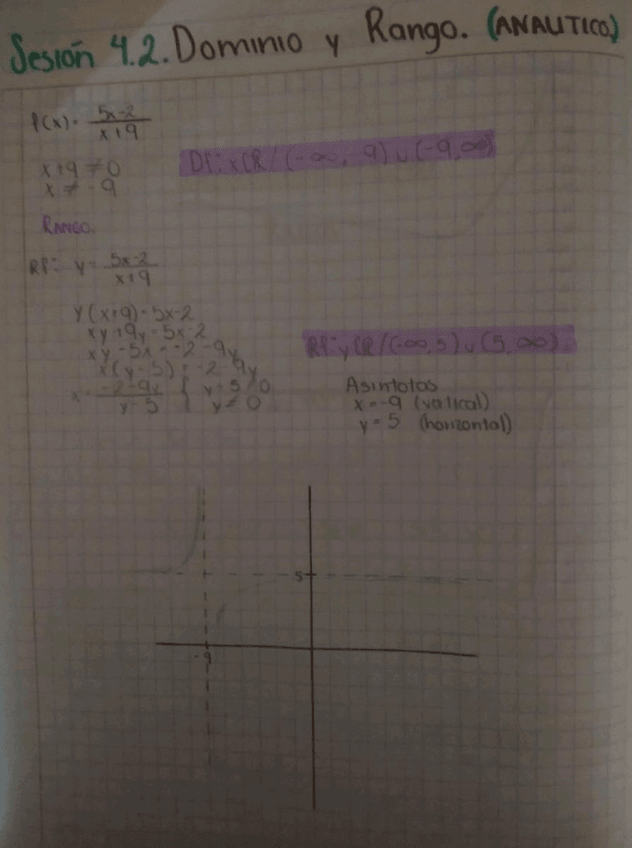 Sesión 4.2. Dominio y Rango. (ANALITICO)
f(x) = 5x-2 / x+9
x+9 ≠ 0
x ≠ -9
Df: x ∈ R / (-∞, -9) ∪ (-9, ∞)
RANGO.
Rf: y = 5x-2 / x+9
y(x+9) = 5x-2
xy+9y = 5x-2
xy-5x = -2-9y
x(y-5) = -2-9y
x = -2-9y / y-5 { y-5 ≠ 0
y ≠ 0
Rf: y ∈ R / (-∞, 5) ∪ (5, ∞).
Asintotas
x = -9 (vertical)
y = 5 (horizontal)
5
-9